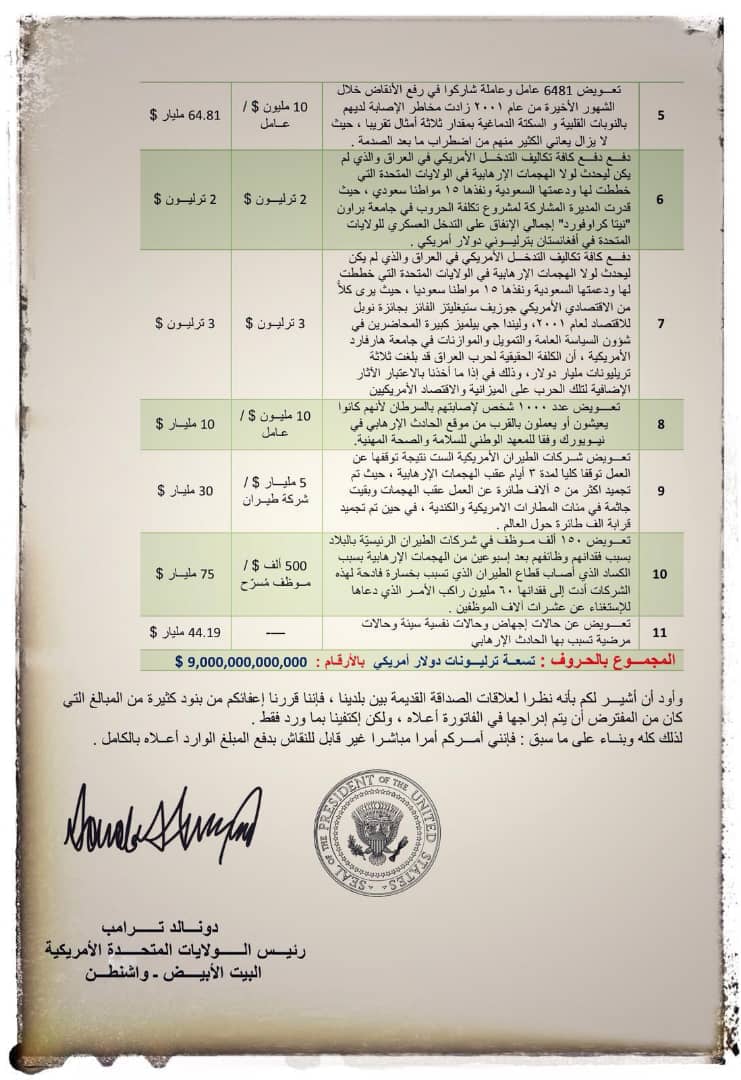 5
تعـويض 6481 عامل وعاملة شاركوا في رفع الأنقاض خلال
الشهور الأخيرة من عام ٢٠٠١ زادت مخاطر الإصابة لديهم
بالنوبات القلبية و السكتة الدماغية بمقدار ثلاثة أمثال تقريبا ، حيث
لا يزال يعاني الكثير منهم من اضطراب ما بعد الصدمة .
10 مليون $ /
عـامل
64.81 مليار $
6
دفـع دفع كافة تكاليف التدخـل الأمريكي في العراق والذي لم
يكن ليحدث لولا الهجمات الإرهابية في الولايات المتحدة التي
خططت لها ودعمتها السعودية ونفذها ١٥ مواطنا سعودي ، حيث
قدرت المديرة المشاركة لمشروع تكلفة الحروب في جامعة براون
"نيتا كراوفورد" إجمالي الإنفاق على التدخل العسكري للولايات
المتحدة في أفغانستان بترليوني دولار أمريكي .
2 ترليـون $
2 ترليـون $
7
دفـع كافة تكاليف التدخـل الأمريكي في العراق والذي لم يكن
ليحدث لولا الهجمات الإرهابية في الولايات المتحدة التي خططت
لها ودعمتها السعودية ونفذها ١٥ مواطنا سعوديا ، حيث يرى كلاً
من الاقتصادي الأمريكي جوزيف ستيغليتز الفائز بجائزة نوبل
للاقتصاد لعام ٢٠٠١، وليندا جي بيلميز كبيرة المحاضرين في
شؤون السياسة العامة والتمويل والموازنات في جامعة هارفارد
الأمريكية ، أن الكلفة الحقيقية لحرب العراق قد بلغت ثلاثة
تريليونات مليار دولار، وذلك في إذا ما أخذنا بالاعتبار الآثار
الإضافية لتلك الحرب على الميزانية والاقتصاد الأمريكيين
3 ترليون $
3 ترليون $
8
تعـويض عدد ١٠٠٠ شخص لإصابتهم بالسرطان لأنهم كانوا
يعيشون أو يعملون بالقرب من موقع الحادث الإرهابي في
نيـويورك وفقا للمعهد الوطني للسلامة والصحة المهنية.
10 مليـون $ /
عـامل
10 مليـار $
9
تعـويض شـركات الطيران الأمريكية الست نتيجة توقفها عن
العمل توقفا كليا لمدة ٣ أيام عقب الهجمات الإرهابية ، حيث تم
تجميد اكثر من ٥ ألاف طائرة عن العمل عقب الهجمات وبقيت
جاثمة في مئات المطارات الامريكية والكندية ، في حين تم تجميد
قرابة الف طائرة حول العالم .
5 مليـار $ /
شركة طيـران
30 مليـار $
10
تعـويض ١٥٠ ألف مـوظف في شركات الطيران الرئيسيّة بالبلاد
بسبب فقدانهم وظائفهم بعد إسبوعين من الهجمات الإرهابية بسبب
الكساد الذي أصـاب قطاع الطيران الذي تسبب بخسارة فادحة لهذه
الشركات أدت إلى فقدانها ٦٠ مليون راكب الأمـر الذي دعاها
للإستغناء عن عشرات آلاف الموظفين .
500 ألف $ /
مـوظف مُسرّح
75 مليـار $
11
تعـويض عن حالات إجهاض وحالات نفسية سيئة وحالات
مرضية تسبب بها الحادث الإرهابي
----
44.19 مليار $
المجمـوع بالحـروف : تسعـة ترليـونات دولار أمريكي بالأرقـام : 9,000,000,000,000 $
وأود أن أشيـر لكم بأنه نظرا لعلاقات الصداقة القديمة بين بلدينا ، فإننا قررنا إعفائكم من بنود كثيرة من المبالغ التي
كان من المفترض أن يتم إدراجها في الفاتورة أعـلاه ، ولكن إكتفينا بما ورد فقط .
لذلك كله وبنـاء على ما سبق : فإنني أمـركم أمرا مباشرا غير قابل للنقاش بدفع المبلغ الوارد أعـلاه بالكامل .
SEAL OF THE PRESIDENT OF THE UNITED STATES
دونـالد تـــرامب
رئيـس الــولايات المتحــدة الأمريكية
البيت الأبيـض ـ واشنطـن